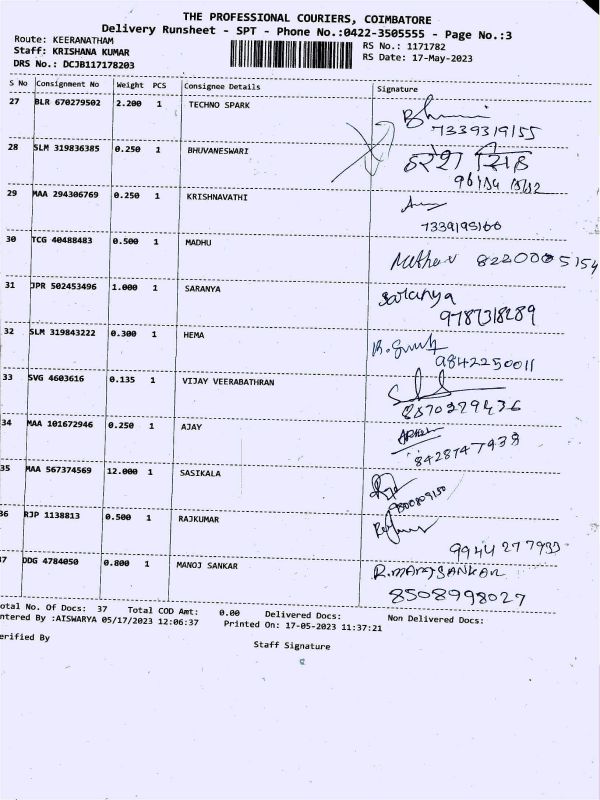 THE PROFESSIONAL COURIERS, COIMBATORE
Delivery Runsheet - SPT - Phone No.:0422-3505555 - Page No.:3
Route: KEERANATHAM
RS No.: 1171782
Staff: KRISHANA KUMAR
RS Date: 17-May-2023
DRS No.: DCJB117178203
S No Consignment No Weight PCS Consignee Details Signature
27 BLR 670279502 2.200 1 TECHNO SPARK
7339319155
28 SLM 319836385 0.250 1 BHUVANESWARI
29 MAA 294306769 0.250 1 KRISHNAVATHI
7339195160
30 TCG 40488483 0.500 1 MADHU
31 JPR 502453496 1.000 1 SARANYA Saranya
32 SLM 319843222 0.300 1 HEMA
9842250011
33 SVG 4603616 0.135 1 VIJAY VEERABATHRAN
8870279436
34 MAA 101672946 0.250 1 AJAY
8428747438
35 MAA 567374569 12.000 1 SASIKALA
36 RJP 1138813 0.500 1 RAJKUMAR
9944277933
37 DDG 4784050 0.800 1 MANOJ SANKAR
8508998027
otal No. Of Docs: 37 Total COD Amt: 0.00 Delivered Docs: Non Delivered Docs:
ntered By :AISWARYA 05/17/2023 12:06:37 Printed On: 17-05-2023 11:37:21
erified By
Staff Signature